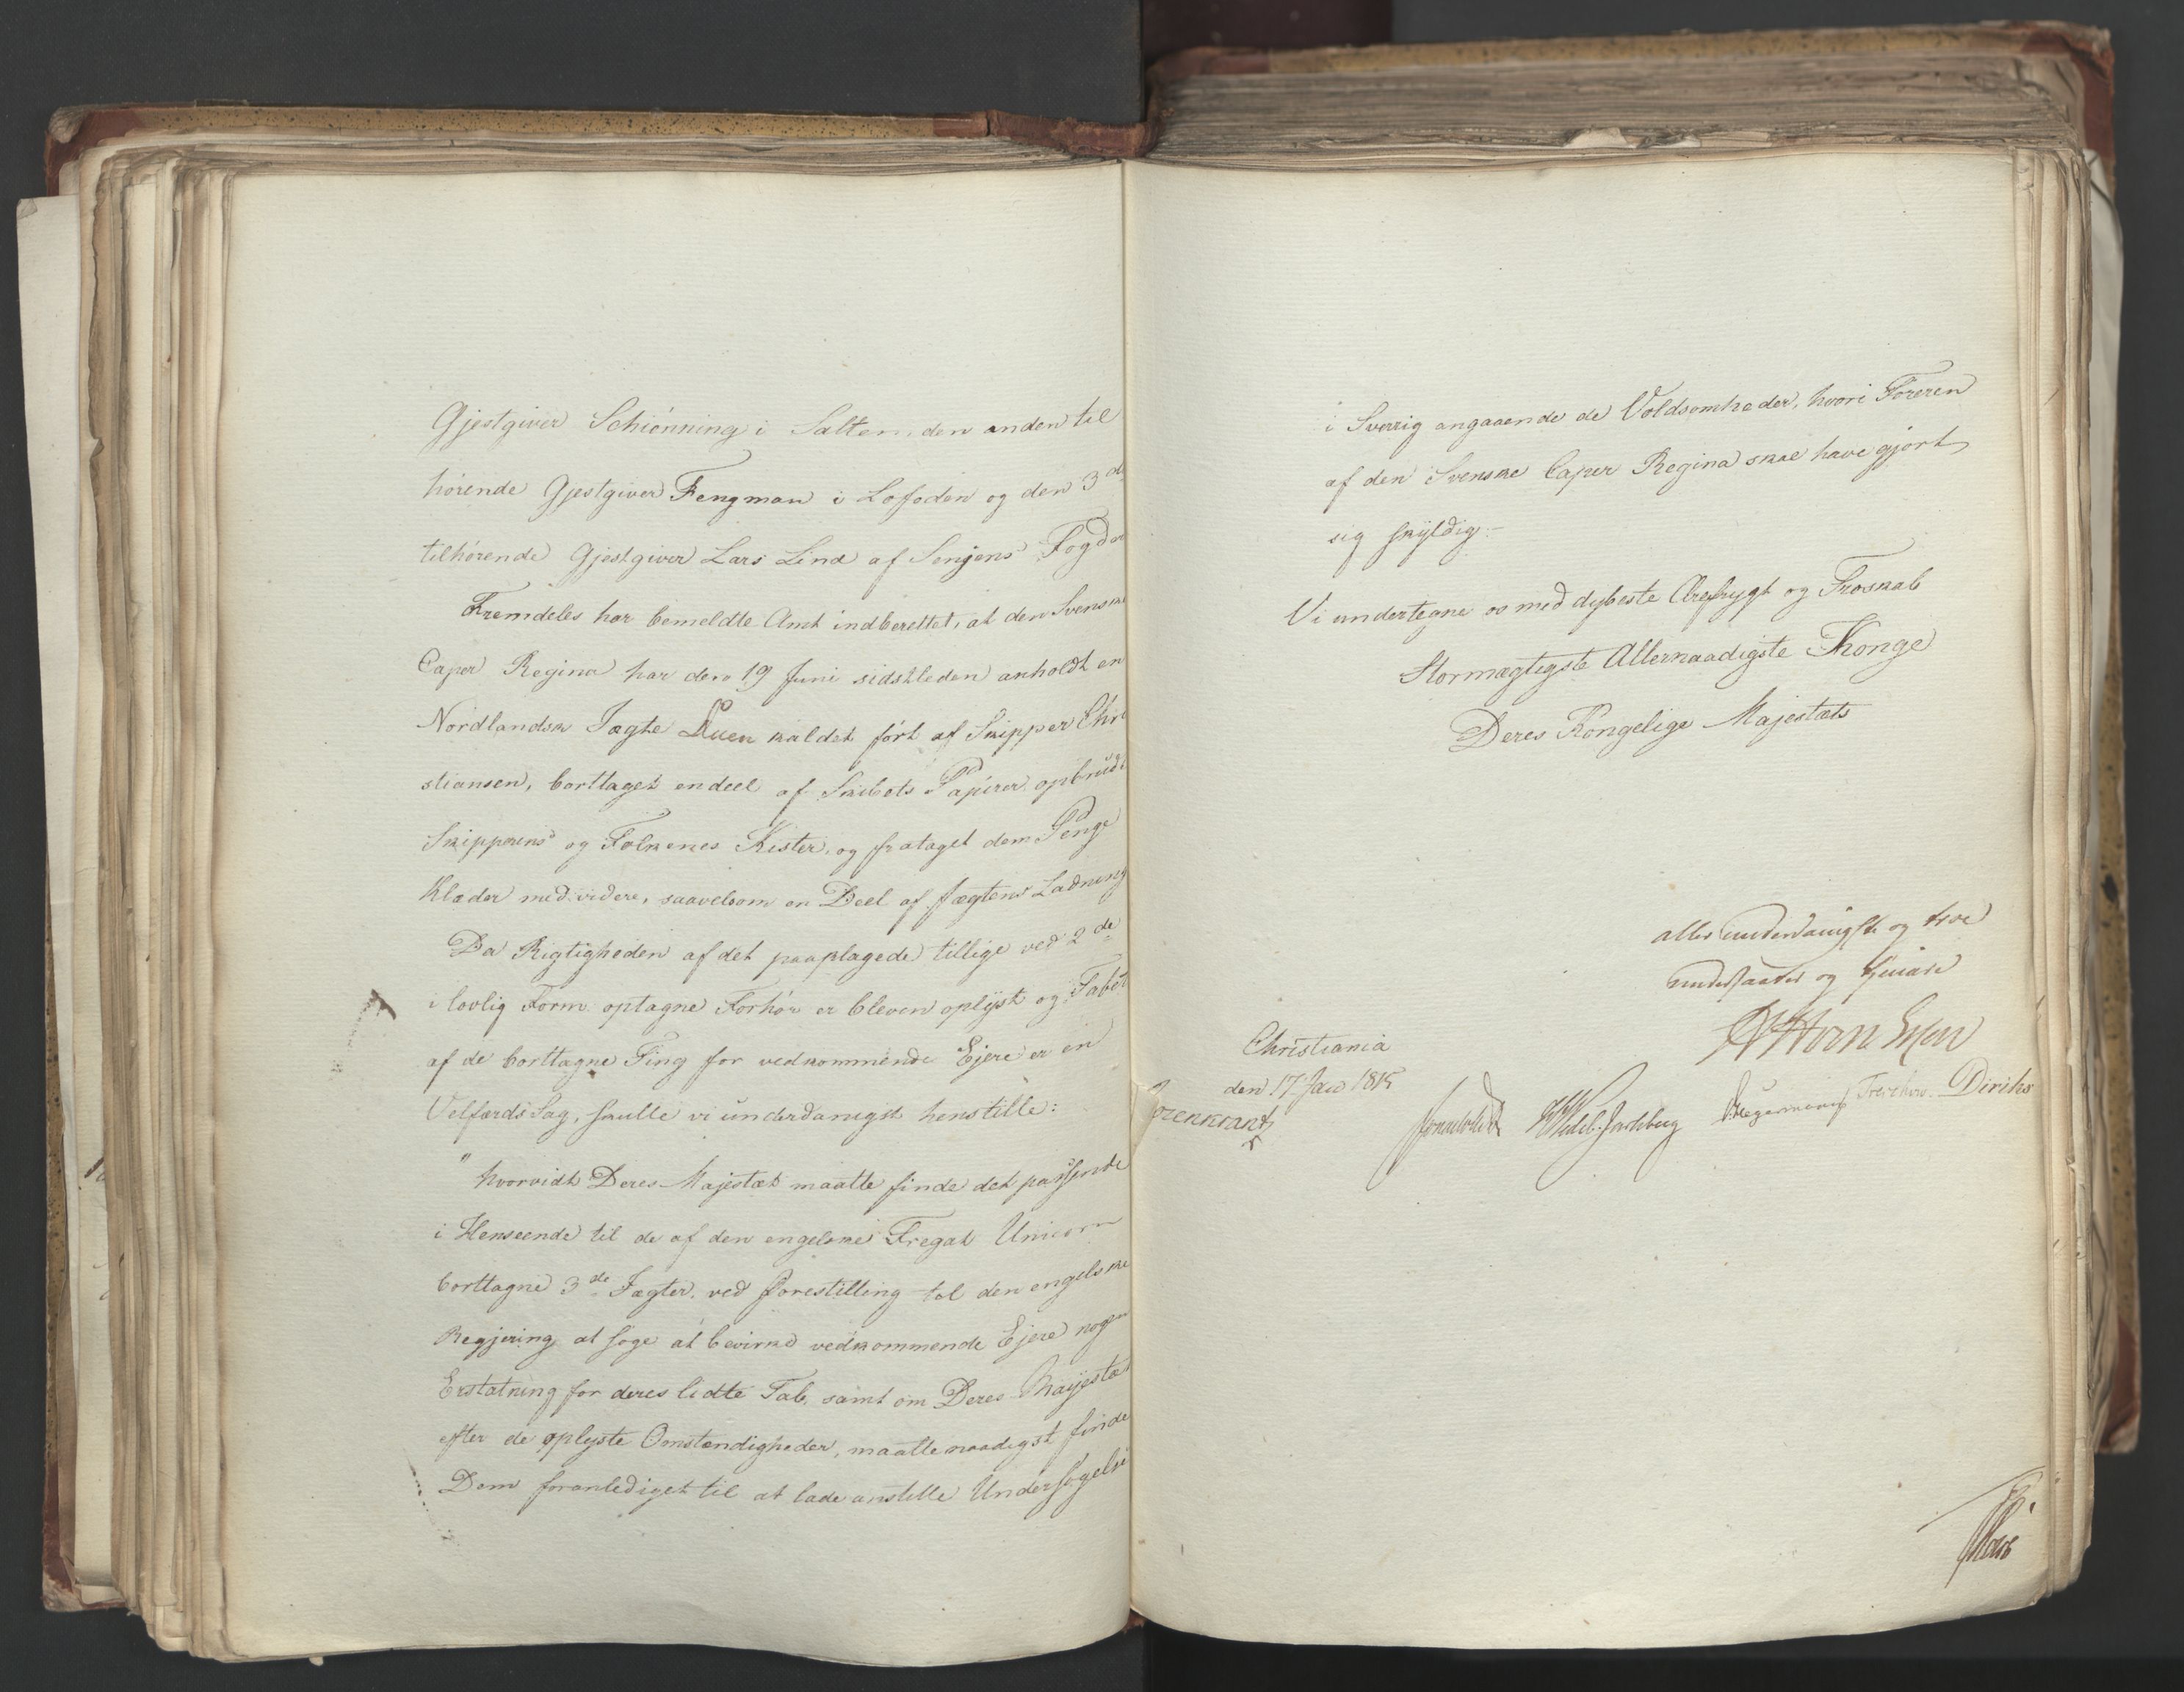 Gjestgiver Schiönning i Salten, den anden til
hörende Gjestgiver Fengman i Lofoden og den 3de
tilhörende Gjestgiver Lars Lind af Senjens Fogdr
Fremdeles har bemeldte Amt indberettet, at den Svenske
Caper Regina har den 19 Juni sidstleden anholdt en
Nordlandsk Jægte Duen kaldet fört af Skipper Chri
stiansen, borttaget endeel af Skibets Papirer opbrudt
Skipperens og Folkenes Kister, og frataget dem Penge
Klæder med videre, saavelsom en Deel af Jægtens Ladning
Da Rigtigheden af det paaklagede tillige ved 2de
i lovlig Form optagne Forhör er bleven oplyst og Tabet
af de borttagne Ting for vedkommende Ejere er en
Velfærds Sag, skulle vi underdanigst henstille:
" hvorvidt Deres Majestæt maatte finde det passende
i Henseende til de af den engelske Fregat Unicorn
borttagne 3de Jægter, ved Forestilling til den engelske
Regjering at söge at bevirke vedkommende Ejere nogen
Erstatning for deres lidte Tab, samt om Deres Majestæt
efter de oplyste Omstændigheder, maatte naadigst finde
Dem foranlediget til at lade anstille Undersögelse
i Sverrig angaaende de Voldsomheder, hvori Föreren
af den Svenske Caper Regina skal have gjort
sig skyldig.-
Vi undertegne os med dybeste Ærefrygt og Troskab
Stormægtigste Allernaadigste Konge
Deres Kongelige Majestæts
allerunderdanigste og troe
undersaatter og tjenere
Christiania
den 17 Jan 1815
Rosenkrantz
Sommerhielm
HWedel-Jarlsberg
Hegermann
Treschow
Diriks